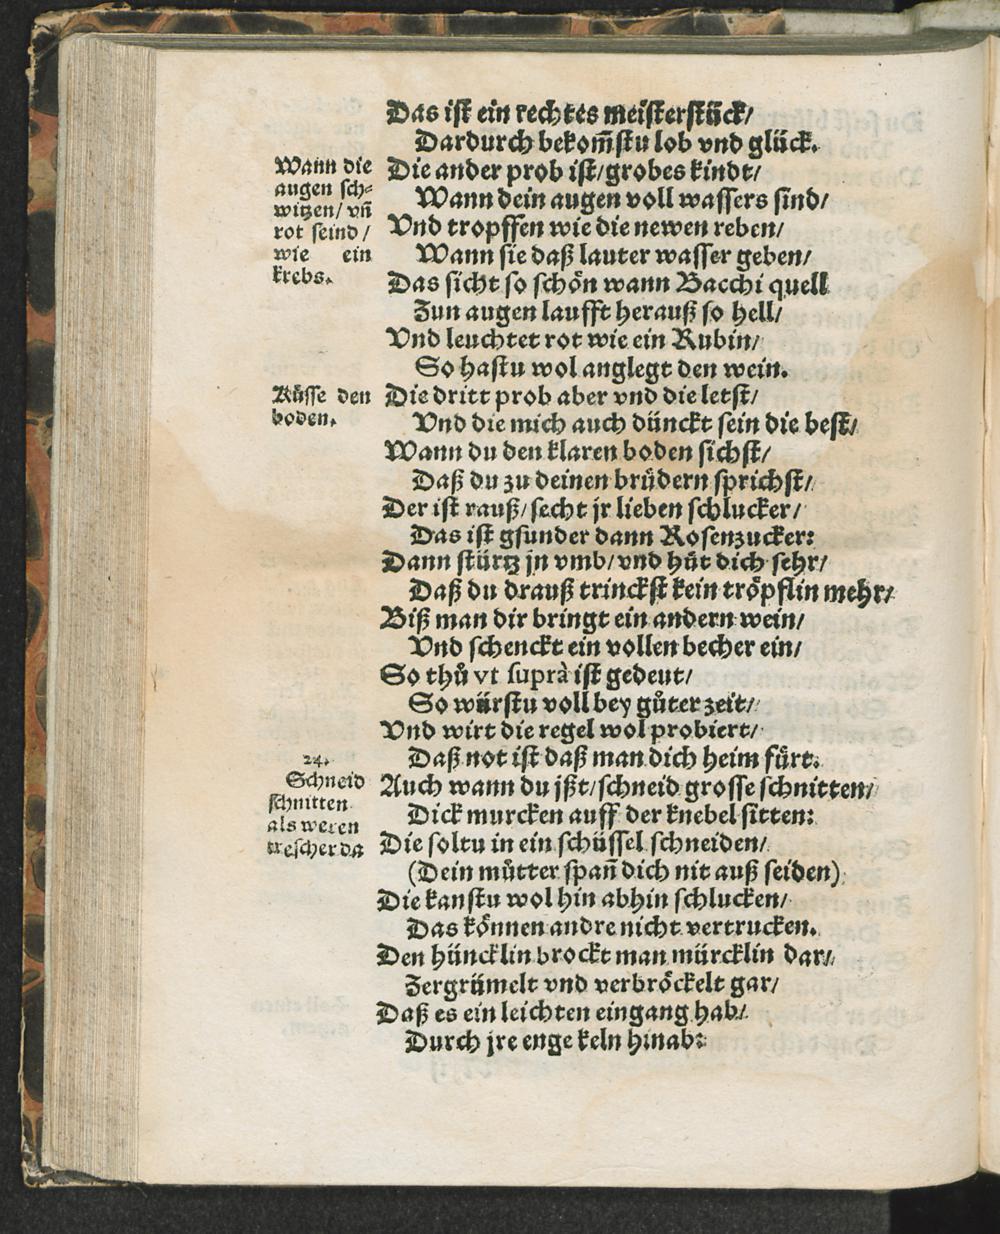 Das ist ein rechtes meisterstück/
Dardurch bekom̄stu lob vnd glück.
Wann die
augen sch⸗
witzen/ vn̄
rot seind /
wie ein
krebs.
Die ander prob ist/grobes kindt/
Wann dein augen voll wassers sind/
Vnd tropffen wie die newen reben/
Wann sie daß lauter wasser geben/
Das sicht so schoͤn wann Bacchi quell
Zun augen laufft herauß so hell/
Vnd leuchtet rot wie ein Rubin/
So hastu wol anglegt den wein.
Küsse den
boden.
Die dritt prob aber vnd die letst/
Vnd die mich auch dünckt sein die best/
Wann du den klaren boden sichst/
Daß du zu deinen brüdern sprichst/
Der ist rauß/secht jr lieben schlucker/
Das ist gsunder dann Rosenzucker:
Dann stürtz jn vmb/vnd huͤt dich sehr/
Daß du drauß trinckst kein troͤpflin mehr/
Biß man dir bringt ein andern wein/
Vnd schenckt ein vollen becher ein/
So thuͦ vt suprà ist gedeut/
So würstu voll bey guͦter zeit/
Vnd wirt die regel wol probiert/
Daß not ist daß man dich heim fuͤrt.
24.
Schneid
schnitten
als weren
trescher da
Auch wann du jßt/schneid grosse schnitten/
Dick murcken auff der knebel sitten:
Die soltu in ein schüssel schneiden/
(Dein muͦtter span̄ dich nit auß seiden)
Die kanstu wol hin abhin schlucken/
Das koͤnnen andre nicht vertrucken.
Den hüncklin brockt man mürcklin dar/
Zergrümelt vnd verbroͤckelt gar/
Daß es ein leichten eingang hab/
Durch jre enge keln hinab: